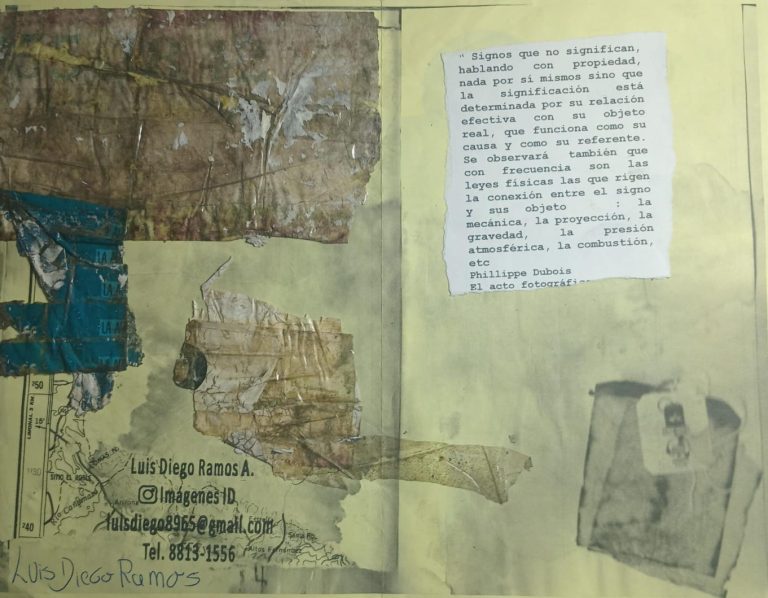 " Signos que no significan,
hablando con propiedad,
nada por si mismos sino que
la significación está
determinada por su relación
efectiva con su objeto
real, que funciona como su
causa y como su referente.
Se observará también que
con frecuencia son las
leyes físicas las que rigen
la conexión entre el signo
y sus objeto : la
mecánica, la proyección, la
gravedad, la presión
atmosférica, la combustión,
etc
Phillippe Dubois
El acto fotográfic
LA A
LA A
250
240
Luis Diego Ramos A.
Imágenes ID
luisdiego8965@gmail.com
Tel. 8813-1556
Altos Fernández
Luis Diego Ramos